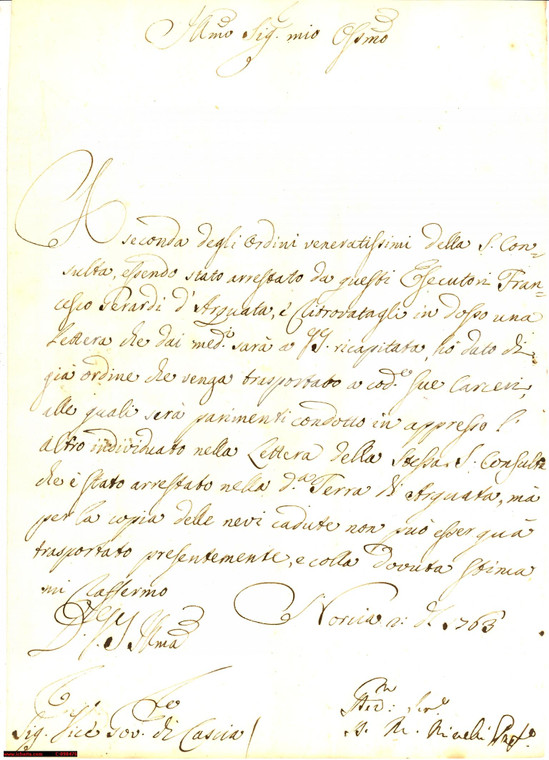 Illmo Sig. mio Ossmo
A seconda degli Ordini veneratissimi della S. Con=
sulta, essendo stato arrestato da questi Esecutori Fran=
cesco d'Arquata, e ritrovatagli in dosso una
Lettera che dai med.i sarà a V.S. ricapitata, hò dato di
già ordine che venga trasportato a cod.e sue Carceri,
alle quali serà parimenti condotto in appresso l'
altro individuato nella Lettera della Stessa S. Consulta
che è stato arrestato nella d.a Terra di Arquata, mà
per la copia delle nevi cadute non può esser quà
trasportato presentemente, e colla dovuta stima
mi raffermo
D. V.S. Illma
Norcia 1763
Sig. Vice Gov. di Cascia